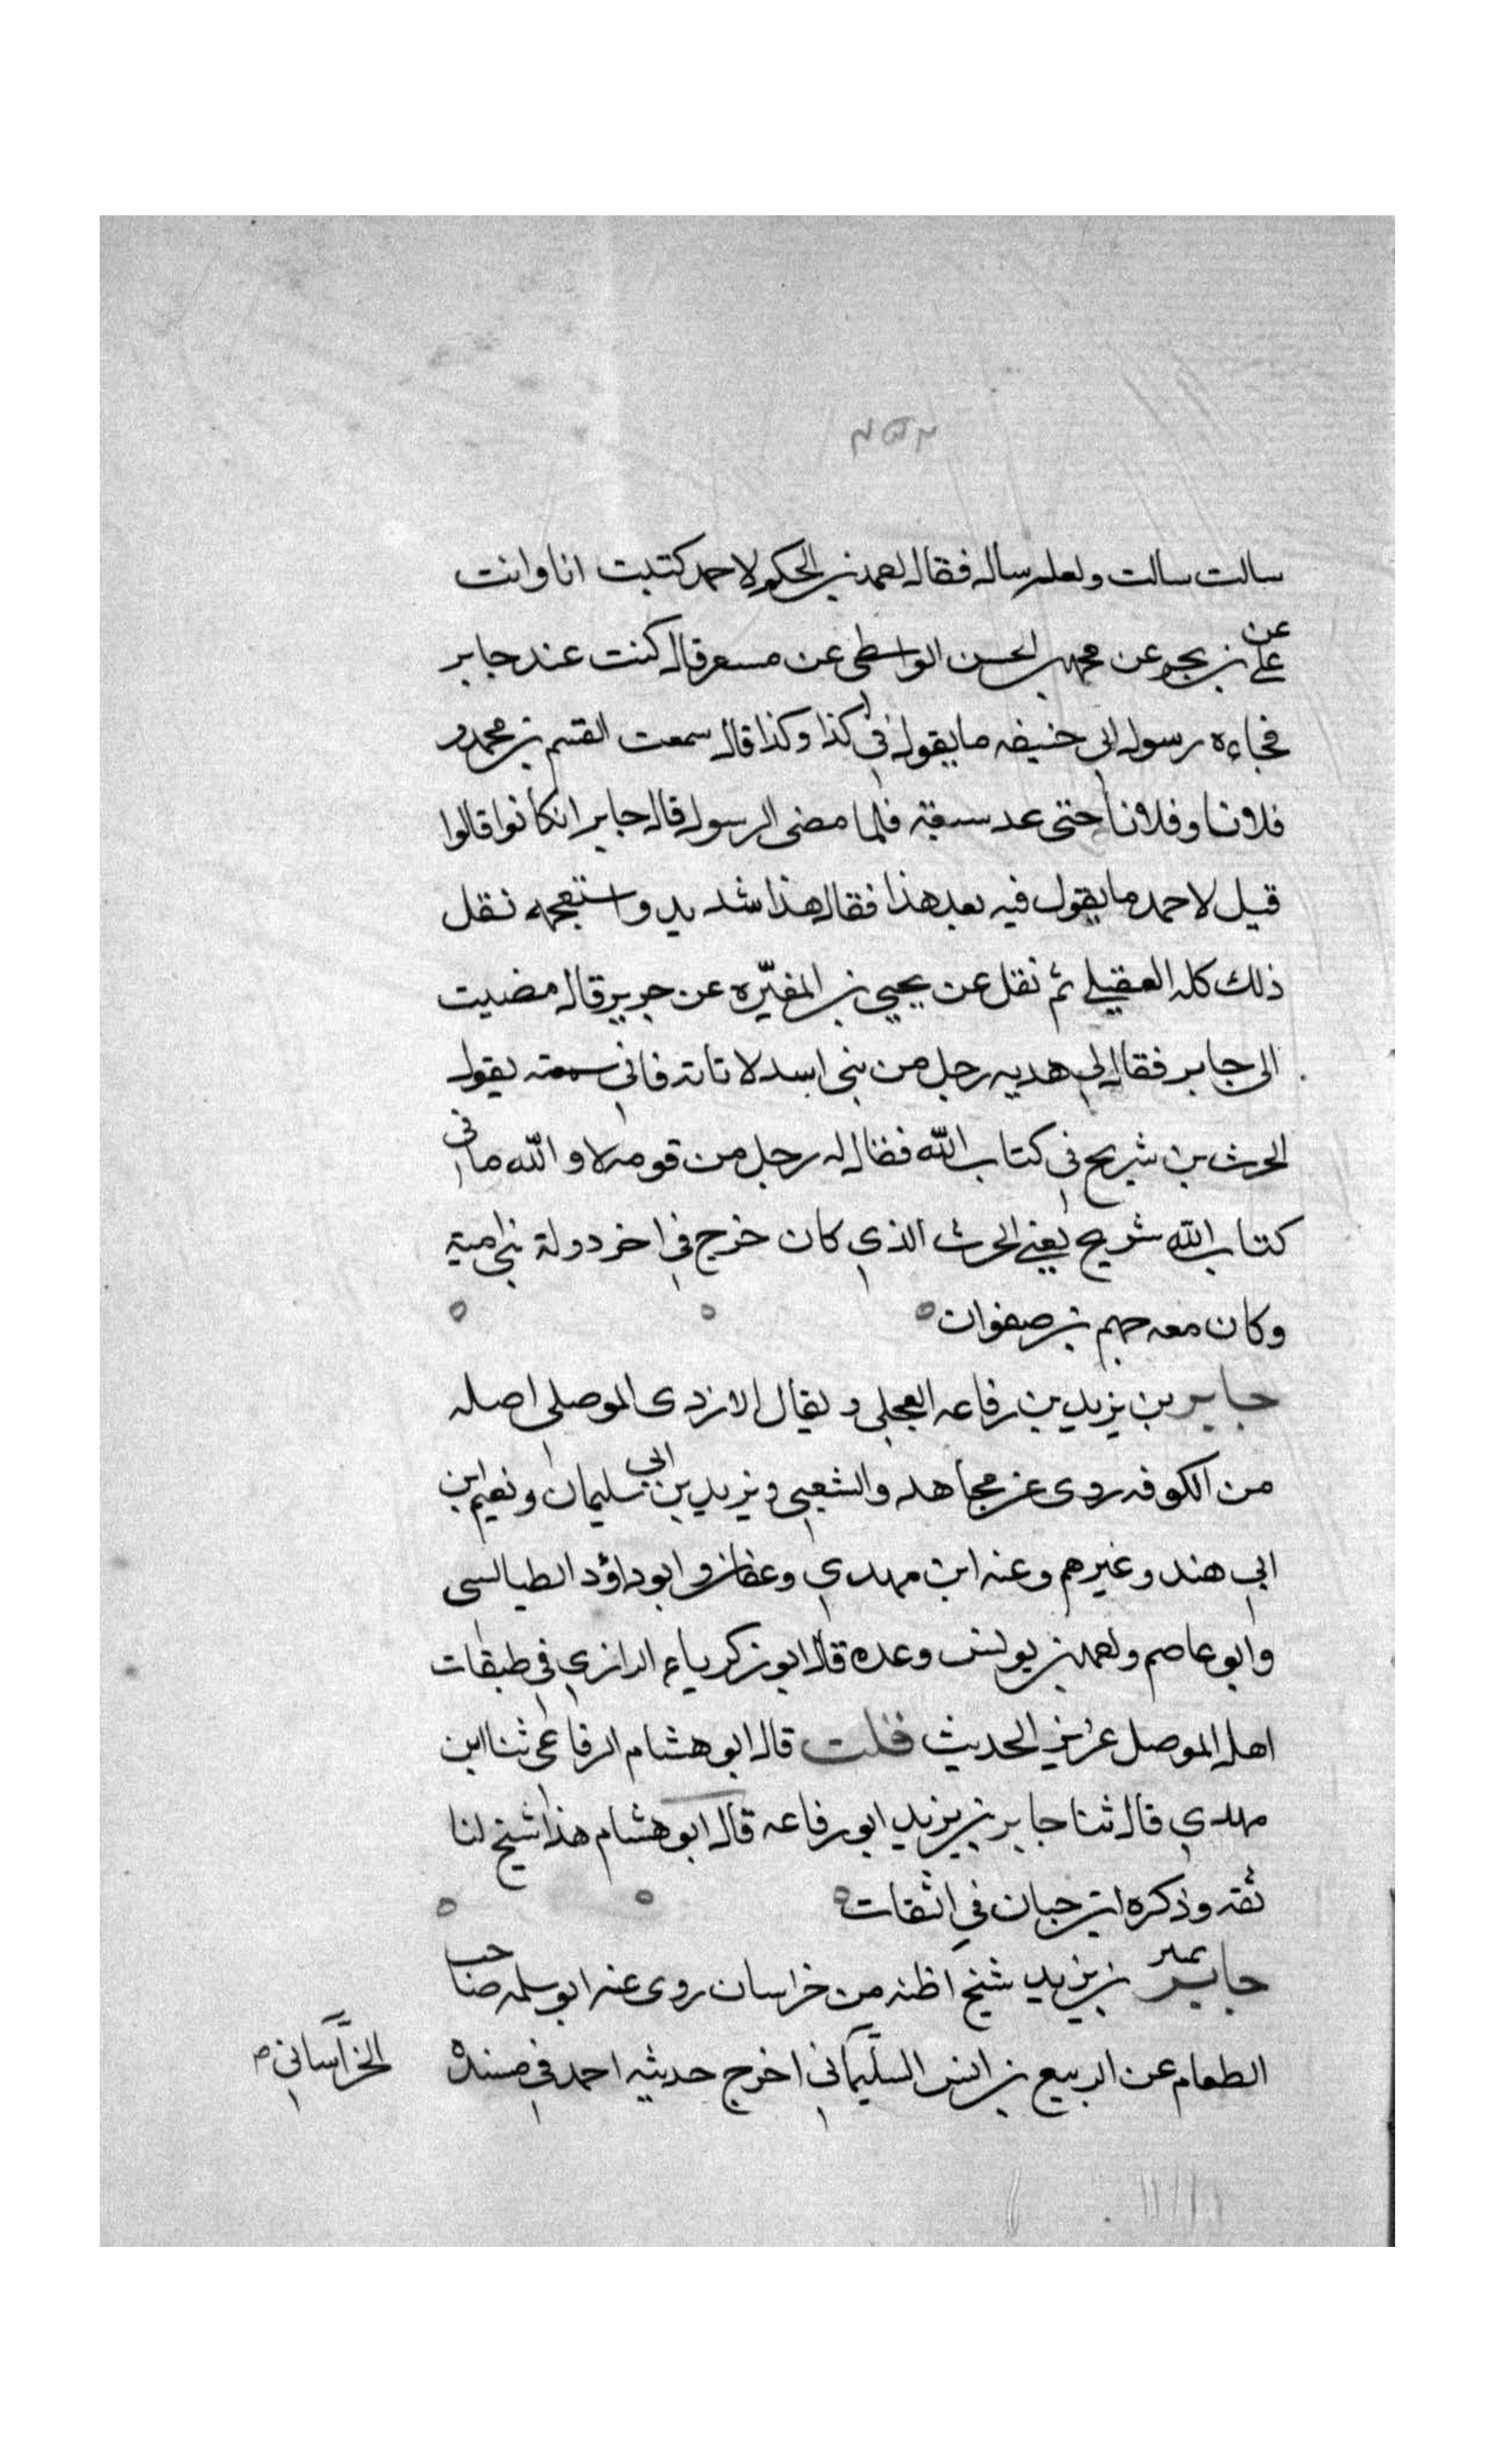 سالت سالت ولعله ساله فقال احمد بن الحكم لاحمد كتبت انا وانت
عن علي بن بحر عن محمد بن الحسن الواسطي عن مسعر قال كنت عند جابر
فجاءه رسول ابي حنيفه ما يقول في كذا وكذا قال سمعت القسم بن محمد و
فلانا وفلانا حتى عد سبعة فلما مضى الرسول قال جابر ان كانوا قالوا
قيل لاحمد ما يقول فيه بعد هذا فقال هذا شديد واستعجمه نقل
ذلك كله العقيلي ثم نقل عن يحيي بن المغيّره عن جرير قال مضيت
الى جابر فقال لي هدبه رجل من بني اسد لا تاته فاني سمعته يقول
الحرث بن شريح في كتاب الله فقال له رجل من قومه لا والله ما في
كتاب الله شريح يعني الحرث الذي كان خرج في اخر دولة بني امية
وكان معه جهم بن صفوان
جابر بن يزيد بن رفاعه العجلي ويقال الازدى الموصلى اصله
من الكوفه روى عن مجاهد والشعبي ويزيد بن ابي سليمان ونعيم ابن
ابي هند وغيرهم وعنه ابن مهدي وعفان وابو داؤد الطيالسى
وابو عاصم واحمد بن يونس وعده قال ابو زكرياء الرازي في طبقات
اهل الموصل عزيز الحديث قلت قال ابو هشام الرفاعي ثنا ابن
مهدي قال ثنا جابر بن يزيد ابو رفاعه قال ابو هشام هذا شيخ لنا
ثقه وذكره ابن حبان في الثقات
جابر بن يزيد شيخ اظنه من خراسان روى عنه ابو سلمه صاحب
الطعام عن الربيع بن انس السليماني اخرج حديثه احمد في مسنده
الخراساني